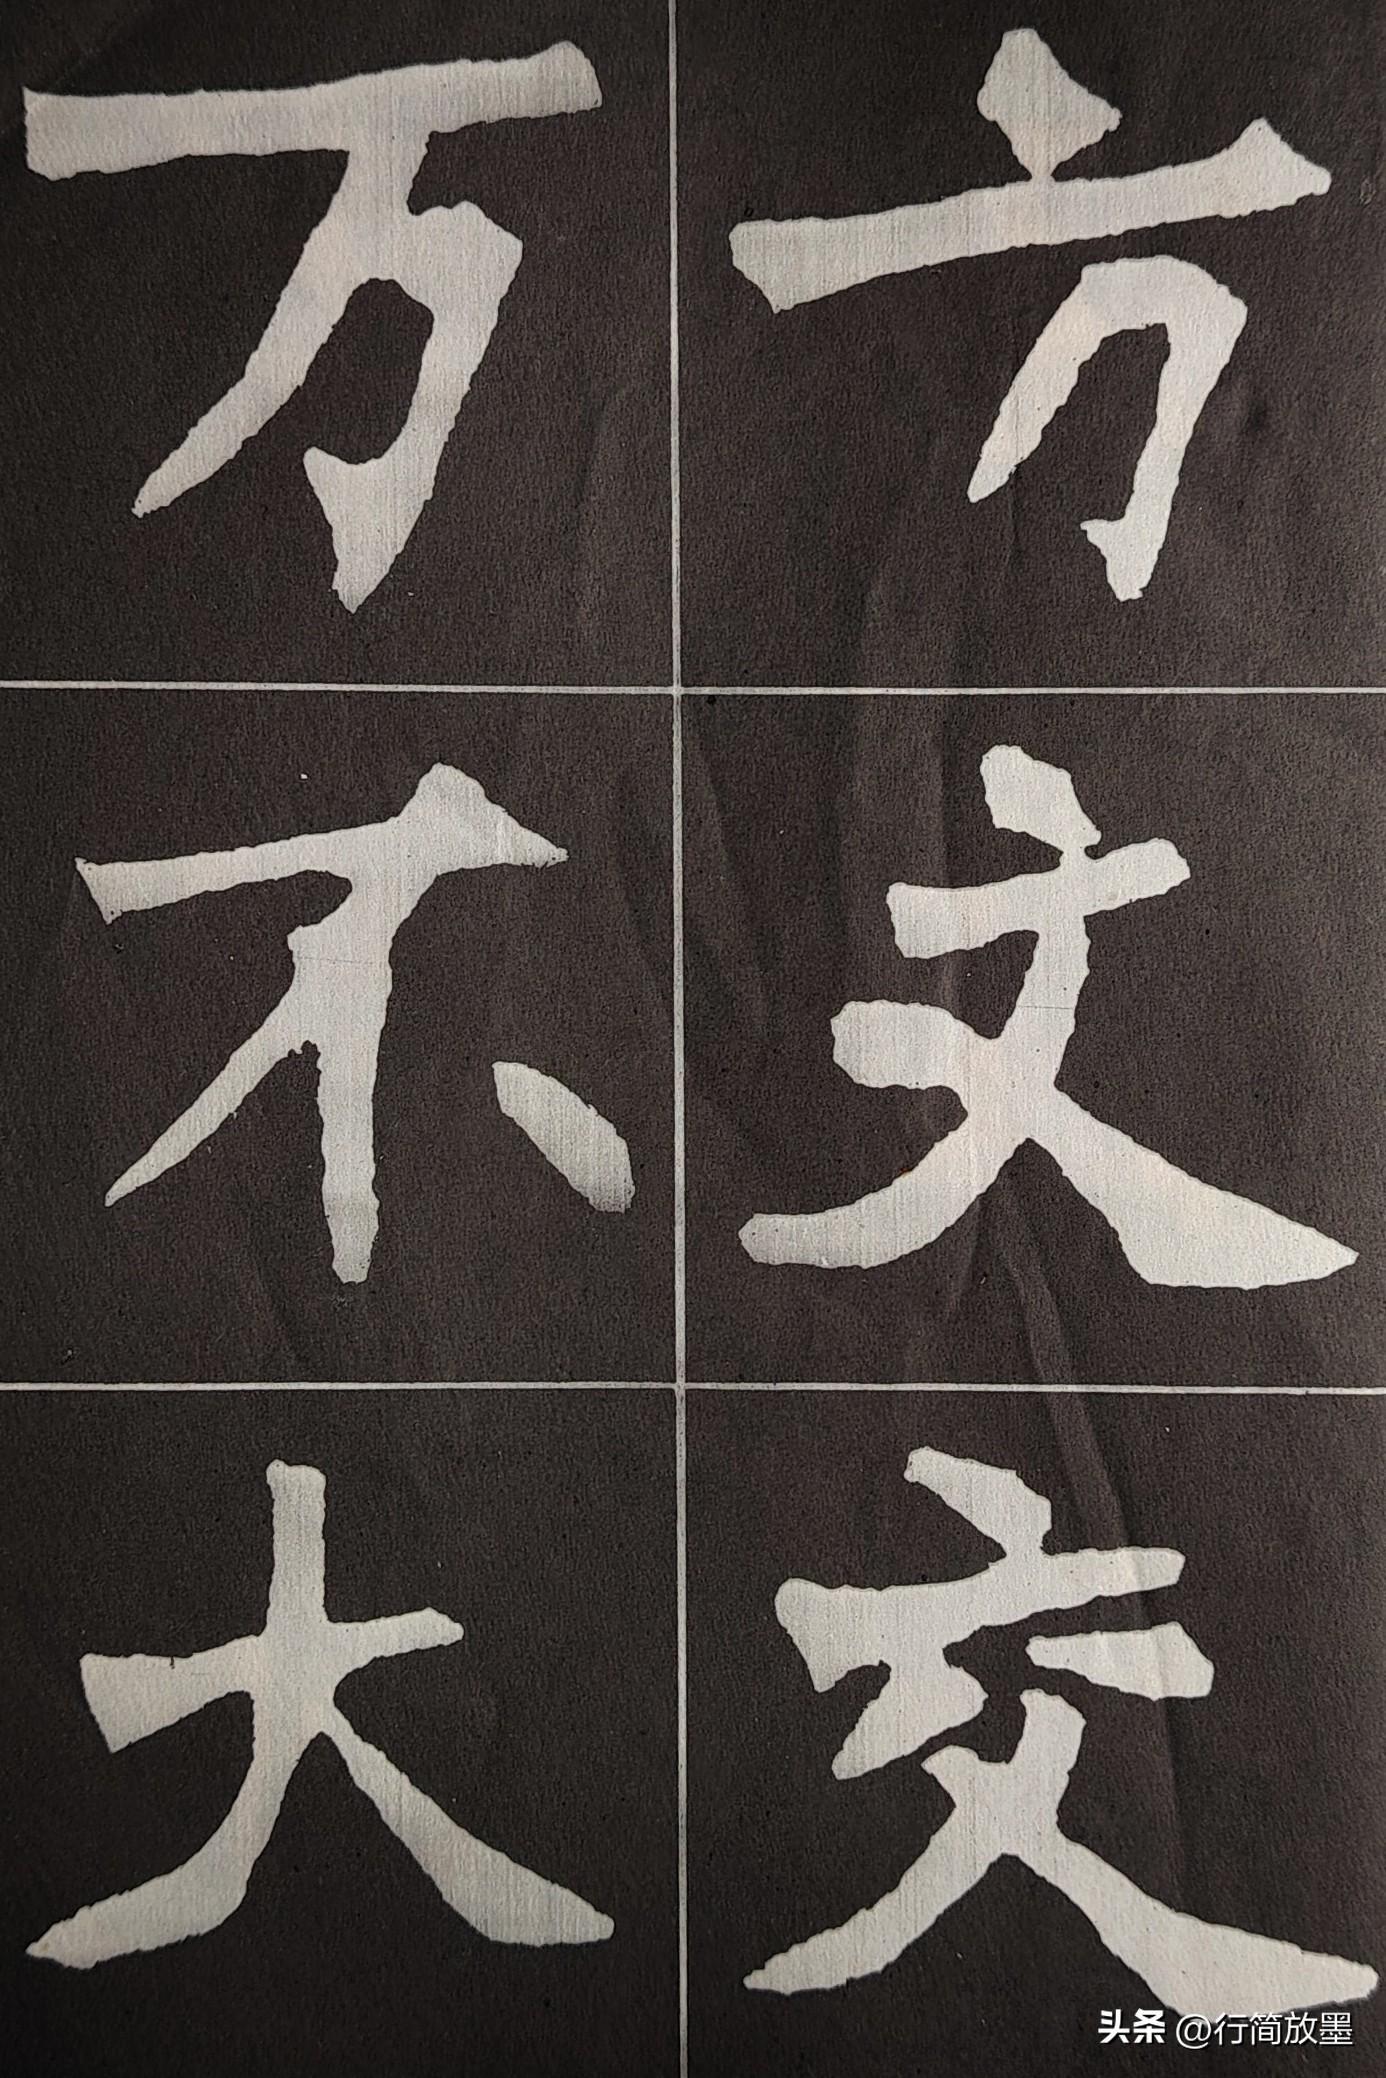 方文交
万不大
头条 @行简放墨